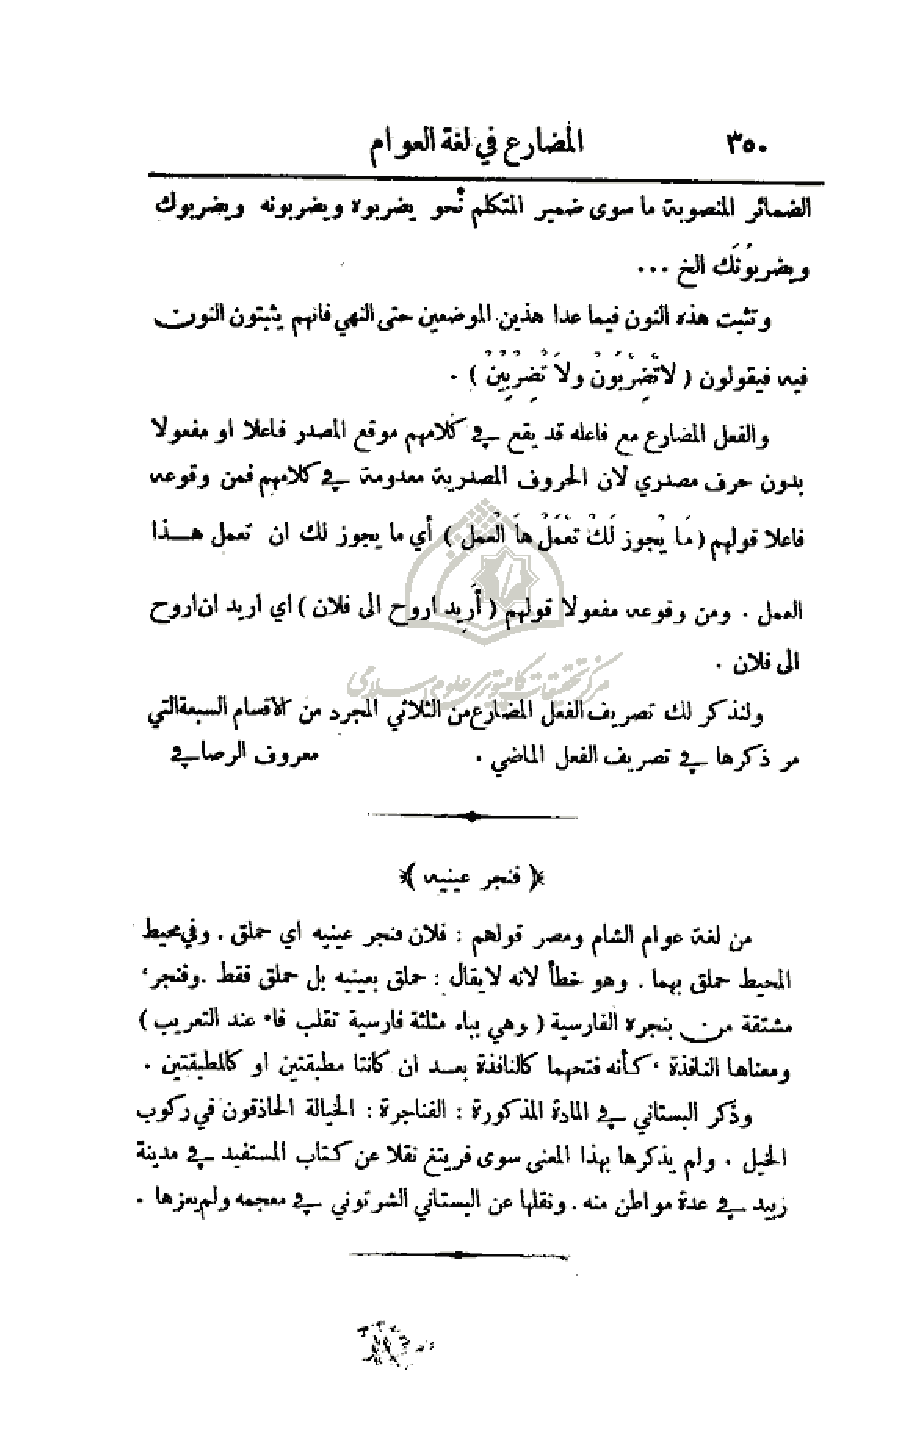 ٣٥٠ المضارع في لغة العوام
الضمائر المنصوبة ما سوى ضمير المتكلم نحو يضربوه ويضربونه ويضربوك
ويضربُونَك الخ ...
وتثبت هذه النون فيما عدا هذين الموضعين حتى النهي فانهم يثبتون النون
فيه فيقولون ( لا تِضْرْبُونْ ولاَ تْضِرْبِينْ ) .
والفعل المضارع مع فاعله قد يقع في كلامهم موقع المصدر فاعلا او مفعولا
بدون حرف مصدري لان الحروف المصدرية معدومة في كلامهم فمن وقوعه
فاعلا قولهم ( مَا يْجوز لَكْ تَعْمَلْ هاَ الْعمل ) أي ما يجوز لك ان تعمل هذا
العمل . ومن وقوعه مفعولا قولهم ( أَريد اروح الى فلان ) اي اريد ان اروح
الى فلان .
ولنذكر لك تصريف الفعل المضارع من الثلاثي المجرد من الاقسام السبعة التي
مر ذكرها في تصريف الفعل الماضي . معروف الرصافي
﴿ فنجر عينيه ﴾
من لغة عوام الشام ومصر قولهم : فلان فنجر عينيه اي حملق . وفي محيط
المحيط حملق بهما . وهو خطأ لانه لا يقال : حملق بعينيه بل حملق فقط . وفنجر ،
مشتقة من بنجره الفارسية ( وهي بباء مثلثة فارسية تقلب فاء عند التعريب )
ومعناها النافذة ، كأنه فتحهما كالنافذة بعد ان كانتا مطبقتين او كالمطبقتين .
وذكر البستاني في المادة المذكورة : الفناجرة : الخيالة الحاذقون في ركوب
الخيل . ولم يذكرها بهذا المعنى سوى فريتغ نقلا عن كتاب المستفيد في مدينة
زبيد في عدة مواطن منه . ونقلها عن البستاني الشرتوني في معجمه ولم يعزها .
مركز تحقيقات كامپيوتری علوم اسلامی